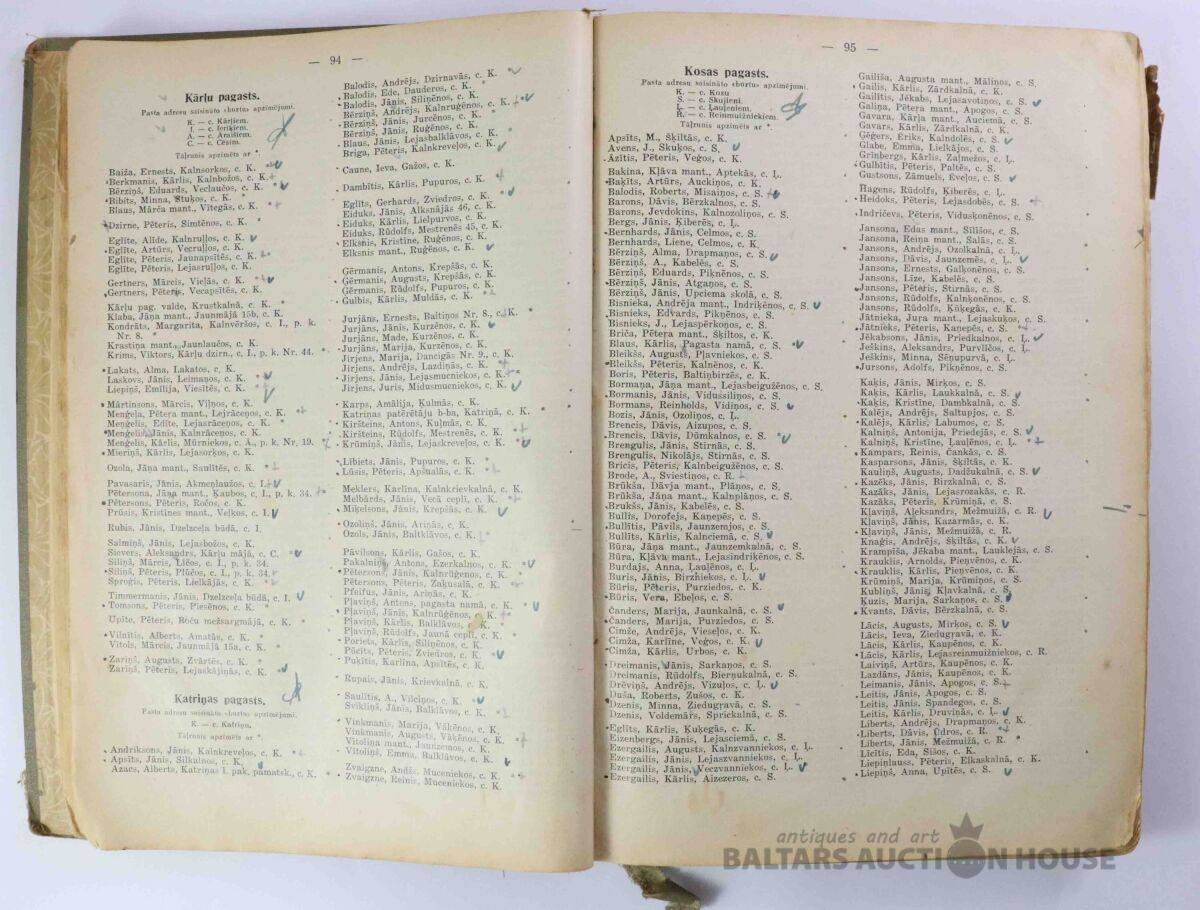 — 94 —
Kārļu pagasts.
Pasta adresu saīsināto «burtu» apzīmējumi.
K. — c. Kārļiem.
I. — c. Ieriķiem.
A. — c. Āraišiem.
C. — c. Cēsīm.
Tāļrunis apzīmēts ar *.
Baiža, Ernests, Kalnsorķos, c. K.
Berkmanis, Kārlis, Kalnbožos, c. K.
Bērziņš, Eduards, Veclaučos, c. K.
Bibīts, Minna, Stuķos, c. K.
Blaus, Mārča mant., Vītegās, c. K.
Dzirne, Pēteris, Simtēnos, c. K.
Eglīte, Alīde, Kalnruļļos, c. K.
Eglīte, Artūrs, Vecruļļos, c. K.
Eglīte, Pēteris, Jaunapsītēs, c. K.
Eglīte, Pēteris, Lejasruļļos, c. K.
Gertners, Mārcis, Vieļās, c. K.
Gertners, Pēteris, Vecapsītēs, c. K.
Kārļu pag. valde, Krustkalnā, c. K. *
Klaba, Jāņa mant., Jaunmājā 15b, c. K.
Kondrāts, Margarita, Kalnvēršos, c. I., p. k.
Nr. 8. *
Krastiņa mant., Jaunlaučos, c. K.
Krims, Viktors, Kārļu dzirn., c. I., p. k. Nr. 44.
Lakats, Alma, Lakatos, c. K.
Laskovs, Jānis, Leimaņos, c. K.
Liepiņš, Emīlija, Viesītēs, c. K.
Mārtinsons, Mārcis, Viļņos, c. K.
Menģeļa, Pētera mant., Lejrāceņos, c. K.
Menģelis, Edīte, Lejasrāceņos, c. K.
Menģelis, Jānis, Kalnrāceņos, c. K.
Menģelis, Kārlis, Mūrniekos, c. Ā., p. k. Nr. 19.
Mieriņš, Kārlis, Lejasorķos, c. K.
Ozola, Jāņa mant., Saulītēs, c. K.
Pavasaris, Jānis, Akmeņlaužos, c. I.
Pētersona, Jāņa mant., Kaubos, c. I., p. k. 34.
Pētersons, Pēteris, Ročos, c. K.
Prūsis, Kristīnes mant., Veļķos, c. I.
Rubis, Jānis, Dzelzceļa būdā, c. I.
Salmiņš, Jānis, Lejasbožos, c. K.
Sīevers, Aleksandrs, Kārļu mājā, c. C.
Siliņš, Mārcis, Līčos, c. I., p. k. 34.
Siliņš, Pēteris, Plūčos, c. I., p. k. 34.
Sproģis, Pēteris, Lielkājās, c. K.
Timmermanis, Jānis, Dzelzceļa būdā, c. I.
Tomsons, Pēteris, Piesēnos, c. K.
Upīte, Pēteris, Roču mežsargmājā, c. K.
Vilnītis, Alberts, Amatās, c. K.
Vītols, Mārcis, Jaunmājā 15a, c. K.
Zariņš, Augusts, Zvārtēs, c. K.
Zariņš, Pēteris, Lejaskājiņās, c. K.
Katriņas pagasts.
Pasta adresu saīsināto «burtu» apzīmējumi.
K. — c. Katriņu.
Tāļrunis apzīmēts ar *.
Andriksons, Jānis, Kalnkreveļos, c. K.
Apsīts, Jānis, Silkalnos, c. K.
Azacs, Alberts, Katriņas I. pak. pamatsk., c. K.
Balodis, Andrējs, Dzirnavās, c. K.
Balodis, Ede, Dauderos, c. K.
Balodis, Jānis, Siliņēnos, c. K.
Bērziņš, Andrējs, Kalnruģēnos, c. K.
Bērziņš, Jānis, Jurcēnos, c. K.
Bērziņš, Jānis, Ruģēnos, c. K.
Blaus, Jānis, Lejasbalklāvos, c. K.
Briga, Pēteris, Kalnkreveļos, c. K.
Caune, Ieva, Gažos, c. K.
Dambītis, Kārlis, Pupuros, c. K.
Eglīts, Gerhards, Zviedros, c. K.
Eiduks, Jānis, Alksnājās 46, c. K.
Eiduks, Kārlis, Lielpurvos, c. K.
Eiduks, Rūdolfs, Mestrenēs 45, c. K.
Elksnis, Kristīne, Ruģēnos, c. K.
Elksnis mant., Ruģēnos, c. K.
Gērmanis, Antons, Krepšās, c. K.
Gērmanis, Augusts, Krepšās, c. K.
Gērmanis, Rūdolfs, Pupuros, c. K.
Gulbis, Kārlis, Muldās, c. K.
Jurjāns, Ernests, Baltiņos Nr. 8., c. K.
Jurjāns, Jānis, Kurzēnos, c. K.
Jurjāns, Made, Kurzēnos, c. K.
Jurjāns, Marija, Kurzēnos, c. K.
Jirjens, Marija, Dancigās Nr. 9., c. K.
Jirjens, Andrejs, Lazdiņās, c. K.
Jirjens, Jānis, Lejasmucniekos, c. K.
Jirjens, Juris, Midusmucniekos, c. K.
Karps, Amālija, Ķulmās, c. K.
Katriņas patērētāju b-ba, Katriņā, c. K. *
Kiršteins, Antons, Ķulmās, c. K.
Kiršteins, Rūdolfs, Mestrenēs, c. K.
Krūmiņš, Jānis, Lejaskreveļos, c. K.
Lībiets, Jānis, Pupuros, c. K.
Lūsis, Pēteris, Apšuļās, c. K.
Meklers, Karlīna, Kalnkrievkalnā, c. K.
Melbārds, Jānis, Vecā ceplī, c. K.
Miķelsons, Jānis, Krepšās, c. K.
Ozoliņš, Jānis, Ariņās, c. K.
Ozols, Jānis, Baltklāvos, c. K.
Pāvilsons, Kārlis, Gašos, c. K.
Pakalniņš, Antons, Ezerkalnos, c. K.
Pētersons, Jānis, Kalnrūģenos, c. K.
Pētersons, Pēteris, Zaķusalā, c. K.
Pfeifus, Jānis, Ariņās, c. K.
Pļaviņš, Antons, pagasta namā, c. K.
Pļaviņš, Jānis, Kalnrūģēnos, c. K.
Pļaviņš, Kārlis, Balklāvos, c. K.
Pļaviņš, Rūdolfs, Jaunā ceplī, c. K.
Poriets, Kārlis, Siliņēnos, c. K.
Pūcīts, Pēteris, Zviedros, c. K.
Puķītis, Karlīna, Apsītēs, c. K.
Rupais, Jānis, Krievkalnā, c. K.
Saulītis, A., Vilciņos, c. K.
Svikliņš, Jānis, Balklāvos, c. K.
Vinkmanis, Marija, Všķēnos, c. K.
Vinkmanis, Augusts, Vāķēnos, c. K.
Vītoliņa mant., Jaunzemos, c. K.
Vītoliņš, Emma, Balklāvos, c. K.
Zvaigzne, Andžs, Muceniekos, c. K.
Zvaigzne, Reinis, Muceniekos, c. K.
— 95 —
Kosas pagasts.
Pasta adresu saīsināto «burtu» apzīmējumi.
K. — c. Kosu
S. — c. Skujieni.
Ļ. — c. Ļauļeniem.
R. — c. Reinmuižniekiem.
Tāļrunis apzīmēts ar *.
Apsīts, M., Šķiltās, c. K.
Avens, J., Skuķos, c. S.
Āzītis, Pēteris, Veģos, c. K.
Bakina, Kļāva mant., Aptekās, c. Ļ.
Baķīts, Artūrs, Auckiņos, c. K.
Balodis, Roberts, Misaiņos, c. S.
Barons, Dāvis, Bērzkalnos, c. K.
Barons, Jevdokins, Kalnozoliņos, c. K.
Bergs, Jānis, Ķiberēs, c. Ļ.
Bernhards, Jānis, Celmos, c. K.
Bernhards, Liene, Celmos, c. K.
Bērziņš, Alma, Drapmaņos, c. S.
Bērziņš, A., Kabelēs, c. S.
Bērziņš, Eduards, Piķņenos, c. S.
Bērziņš, Jānis, Atgaņos, c. S.
Bērziņš, Jānis, Upciema skolā, c. S.
Bisnieka, Andrēja mant., Indriķēnos, c. S.
Bisnieks, Edvards, Pikņēnos, c. S.
Bisnieks, J., Lejaspērkoņos, c. K.
Briča, Pētera mant., Šķiltos, c. K.
Blaus, Kārlis, Pagasta namā, c. S.
Bleikšs, Augusts, Pļavniekos, c. S.
Bleikšs, Pēteris, Kalnēnos, c. K.
Boris, Pēteris, Baltiņbirzēs, c. K.
Bormaņa, Jāņa mant., Lejasbeigužēnos, c. S.
Bormanis, Jānis, Vidusšiliņos, c. S.
Bormans, Reinholds, Vidiņos, c. S.
Bozis, Jānis, Ozoliņos, c. Ļ.
Brencis, Dāvis, Aizupos, c. S.
Brencis, Dāvis, Dūmkalnos, c. S.
Brengulis, Jānis, Stirnās, c. S.
Brengulis, Nikolājs, Stirnās, c. S.
Bricis, Pēteris, Kalnbeigužēnos, c. S.
Brode, A., Sviestiņos, c. R.
Brūkša, Dāvja mant., Plāņos, c. S.
Brūkša, Jāņa mant., Kalnplāņos, c. S.
Brukšs, Jānis, Kabelēs, c. S.
Bullīš, Dorofejs, Kaņepēs, c. S.
Bullītis, Pāvils, Jaunzemjos, c. S.
Bullīts, Kārlis, Kalnciemā, c. S.
Būra, Jāņa mant., Jaunzemkalnā, c. S.
Būra, Kļāva mant., Lejasindriķēnos, c. S.
Burdajs, Anna, Ļauļēnos, c. Ļ.
Buris, Jānis, Birzniekos, c. Ļ.
Būris, Pēteris, Purziedos, c. K.
Būris, Vera, Ebeļos, c. S.
Čanders, Marija, Jaunkalnā, c. S.
Čanders, Marija, Purziedos, c. S.
Cimže, Andrējs, Vieseļos, c. K.
Cimža, Karlīne, Veģos, c. K.
Cimža, Kārlis, Urbos, c. K.
Dreimanis, Jānis, Sarkaņos, c. S.
Dreimanis, Rūdolfs, Bierņukalnā, c. S.
Drēviņš, Andrējs, Vizuļos, c. Ļ.
Duša, Roberts, Zušos, c. K.
Dzenis, Minna, Ziedugravā, c. S.
Dzenis, Voldemārs, Sprickalnā, c. S.
Eglīts, Kārlis, Ķuķegās, c. K.
Eizenbergs, Jānis, Lejasciemā, c. S.
Ezergailis, Augusts, Kalnzvanniekos, c. Ļ.
Ezergailis, Jānis, Lejaszvanniekos, c. Ļ.
Ezergailis, Jānis, Veczvanniekos, c. Ļ.
Ezergailis, Kārlis, Aizezeros, c. S.
Gailīša, Augusta mant., Māliņos, c. S.
Gailis, Kārlis, Zārdkalnā, c. K.
Gailītis, Jēkabs, Lejasavotiņos, c. S.
Galiņa, Pētera mant., Apogos, c. S.
Gavara, Kārļa mant., Auciemā, c. S.
Gavars, Kārlis, Zārdkalnā, c. K.
Gēģers, Ēriks, Kalndolēs, c. S.
Glabe, Emma, Lielkājos, c. S.
Grinbergs, Kārlis, Zaļmežos, c. Ļ.
Gulbītis, Pēteris, Paltēs, c. S.
Gustsons, Zāmuels, Eveļos, c. S.
Hagens, Rūdolfs, Ķiberēs, c. Ļ.
Heidoks, Pēteris, Lejasdobēs, c. S.
Indričevs, Pēteris, Viduskonēnos, c. S.
Jansona, Edas mant., Sīlišos, c. S.
Jansona, Reiņa mant., Salās, c. S.
Jansons, Andrējs, Ozolkalnā, c. Ļ.
Jansons, Dāvis, Jaunzemēs, c. Ļ.
Jansons, Ernests, Gaļķonēnos, c. S.
Jansons, Līze, Kabelēs, c. S.
Jansons, Pēteris, Stirnās, c. S.
Jansons, Rūdolfs, Kalnķonēnos, c. S.
Jansons, Rūdolfs, Ķūķegās, c. K.
Jātnieka, Jura mant., Lejaskuķos, c. S.
Jātnieks, Pēteris, Kaņepēs, c. S.
Jēkabsons, Jānis, Priedkalnos, c. Ļ.
Ješkins, Aleksandrs, Purvličos, c. Ļ.
Ješkins, Minna, Sēņupurvā, c. Ļ.
Jursons, Adolfs, Pikņēnos, c. S.
Kaķis, Jānis, Mirķos, c. S.
Kaķis, Kārlis, Laukkalnā, c. S.
Kaķis, Kristīne, Dambkalnā, c. S.
Kalējs, Andrējs, Saltupjos, c. S.
Kalējs, Kārlis, Labumos, c. S.
Kalniņš, Antonija, Priedejās, c. S.
Kalniņš, Kristīne, Ļauļēnos, c. Ļ.
Kampars, Reinis, Čankās, c. S.
Kasparsons, Jānis, Šķiltās, c. K.
Kauliņš, Augusts, Dadžukalnā, c. S.
Kazēks, Jānis, Birzkalnā, c. S.
Kazāks, Jānis, Lejasrozakās, c. R.
Kazāks, Pēteris, Krūmiņā, c. S.
Kļaviņš, Aleksandrs, Mežmuižā, c. R.
Kļaviņš, Jānis, Kazarmās, c. K.
Kļaviņš, Jānis, Mežmuižā, c. R.
Knaģis, Andrējs, Šķiltās, c. K.
Krampiša, Jēkaba mant., Lauklejās, c. S.
Krauklis, Arnolds, Pieņvēnos, c. K.
Krauklis, Kārlis, Pieņvēnos, c. K.
Krūmiņš, Marija, Krūmiņos, c. S.
Kubliņš, Jānis, Kļavkalnā, c. S.
Kuzis, Marija, Sarkaņos, c. S.
Kvants, Dāvis, Bērzkalnā, c. S.
Lācis, Augusts, Mirķos, c. S.
Lācis, Ieva, Ziedugravā, c. K.
Lācis, Kārlis, Kaupēnos, c. K.
Lācis, Kārlis, Lejasreinmuižniekos, c. R.
Laiviņš, Artūrs, Kaupēnos, c. K.
Lazdāns, Jānis, Kaupēnos, c. K.
Leimanis, Jānis, Apogos, c. S.
Leitis, Jānis, Apogos, c. S.
Leitis, Jānis, Spandegos, c. S.
Leitis, Kārlis, Druviņās, c. Ļ.
Liberts, Andrējs, Drapmaņos, c. K.
Liberts, Dāvis, Ūdros, c. R. *
Liberts, Jānis, Mežmuižā, c. R. *
Līcītis, Eda, Sišos, c. K.
Liepiņlauss, Pēteris, Elkaskalnā, c. K.
Liepiņš, Anna, Upītēs, c. S.
antiques and art
BALTARS AUCTION HOUSE